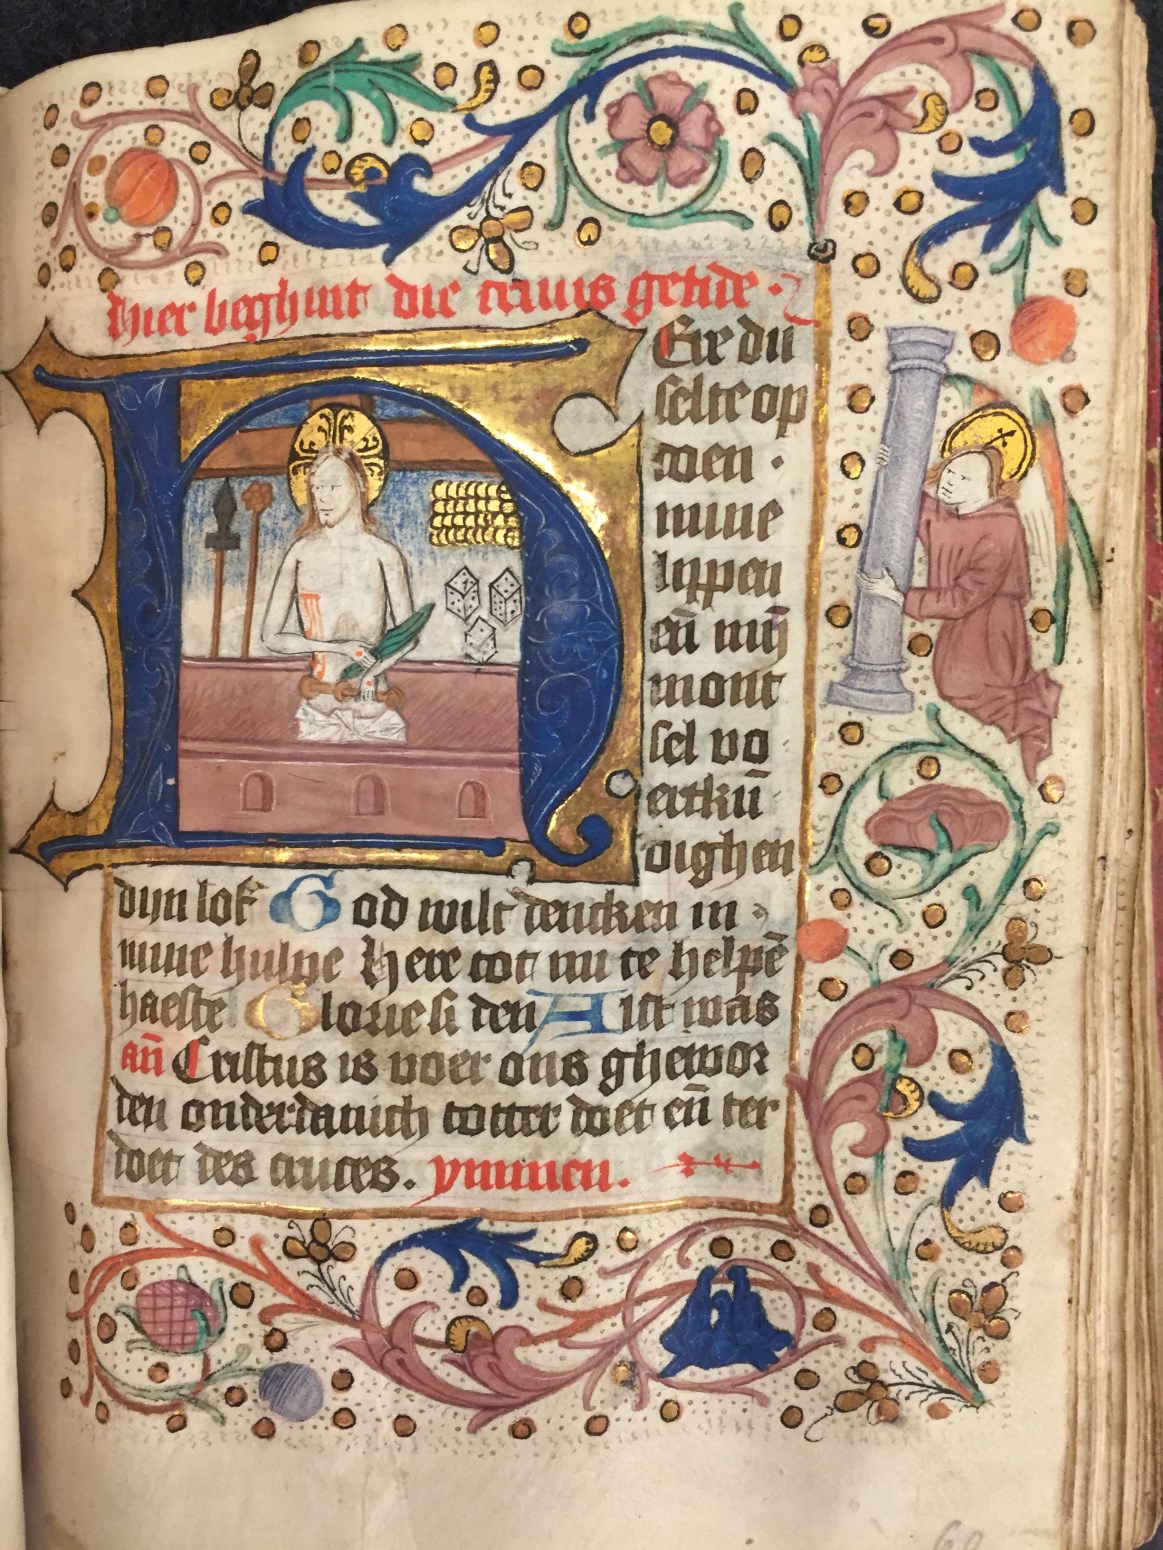 Hier beghint die cruus getide.
HEre du
selte op
doen.
mine
lippen
en̄ mijn̄
mont
sel vo
ertkū
dighen
dijn lof God wilt dencken in
mine hulpe Here tot mi te helpē
haeste Glorie si den Alst was
an̄ Cristus is voer ons ghewor
den onderdanich totter doet en̄ ter
doet des cruces. ymmen.
60